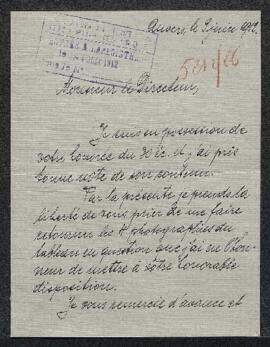 Anvers, le
1912
5212/66
Monsieur le Directeur,
Je suis en possession de
votre honorée du et j'ai pris
bonne note de son contenu.
Par la présente je prends la
liberté de vous prier de me faire
retourner les photographies du
tableau en question que j'ai eu l'hon-
neur de mettre à votre honorable
disposition.
Je vous remercie d'avance et